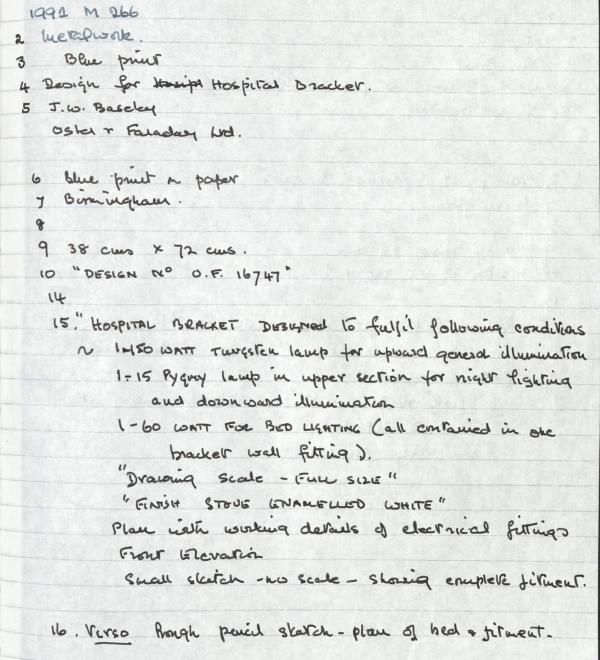 1992 M 266
2 Metalwork.
3 Blue print
4 Design for Hospital Bracket.
5 J.W. Baseley
Osler & Faraday Ltd.
6 Blue print on paper
7 Birmingham.
8
9 38 cms x 72 cms.
10 "DESIGN No O.F. 16747"
14
15. "HOSPITAL BRACKET DESIGNED to fulfil following conditions
1-150 WATT TUNGSTEN lamp for upward general illumination
1-15 Pygmy lamp in upper section for night lighting
and downward illumination
1-60 WATT FOR BED LIGHTING (all contained in one
bracket wall fitting).
"Drawing Scale - FULL SIZE"
"FINISH STOVE ENAMELLED WHITE"
Plan with working details of electrical fittings
Front Elevation
Small sketch - no scale - showing complete fitment.
16. Verso Rough pencil sketch - plan of bed & fitment.